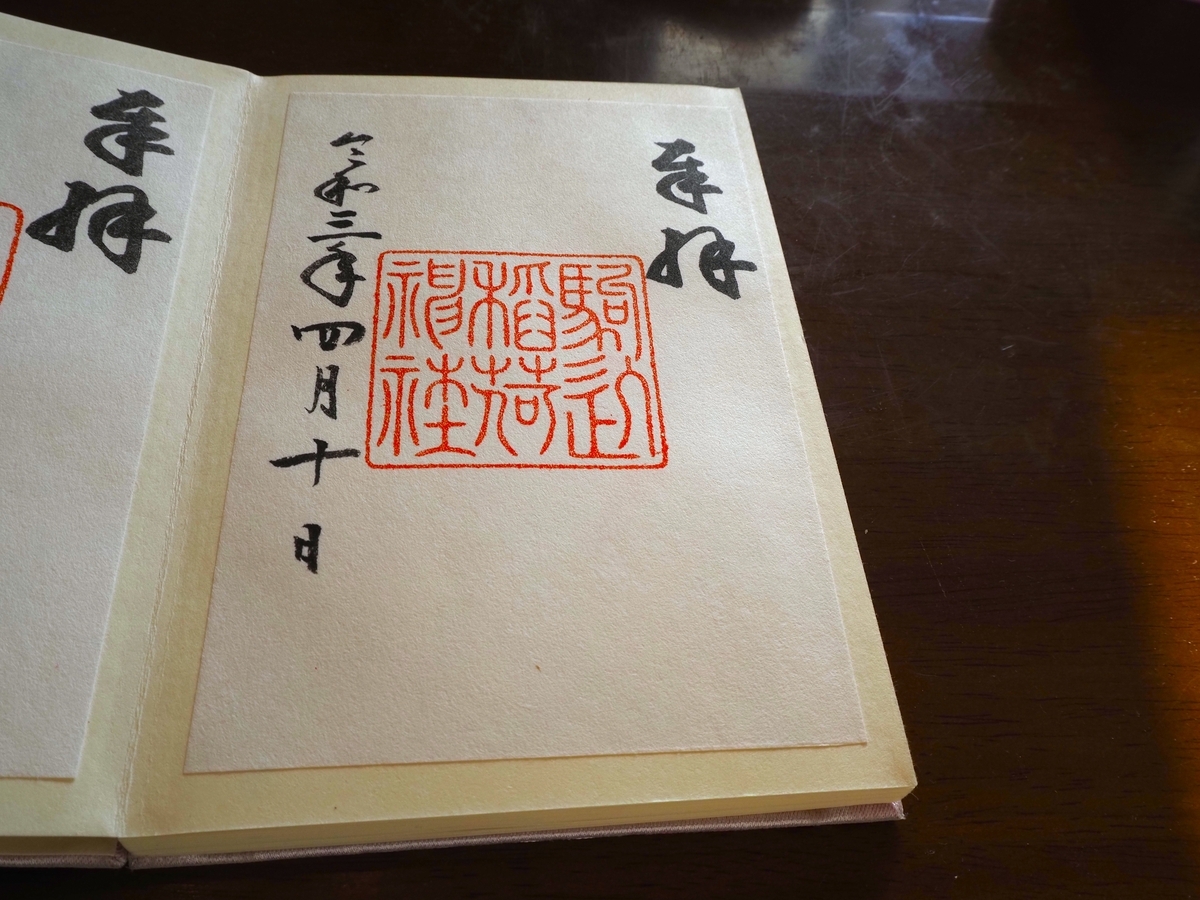 奉拝
駒込
稲荷
神社
令和三年四月十日
奉拝